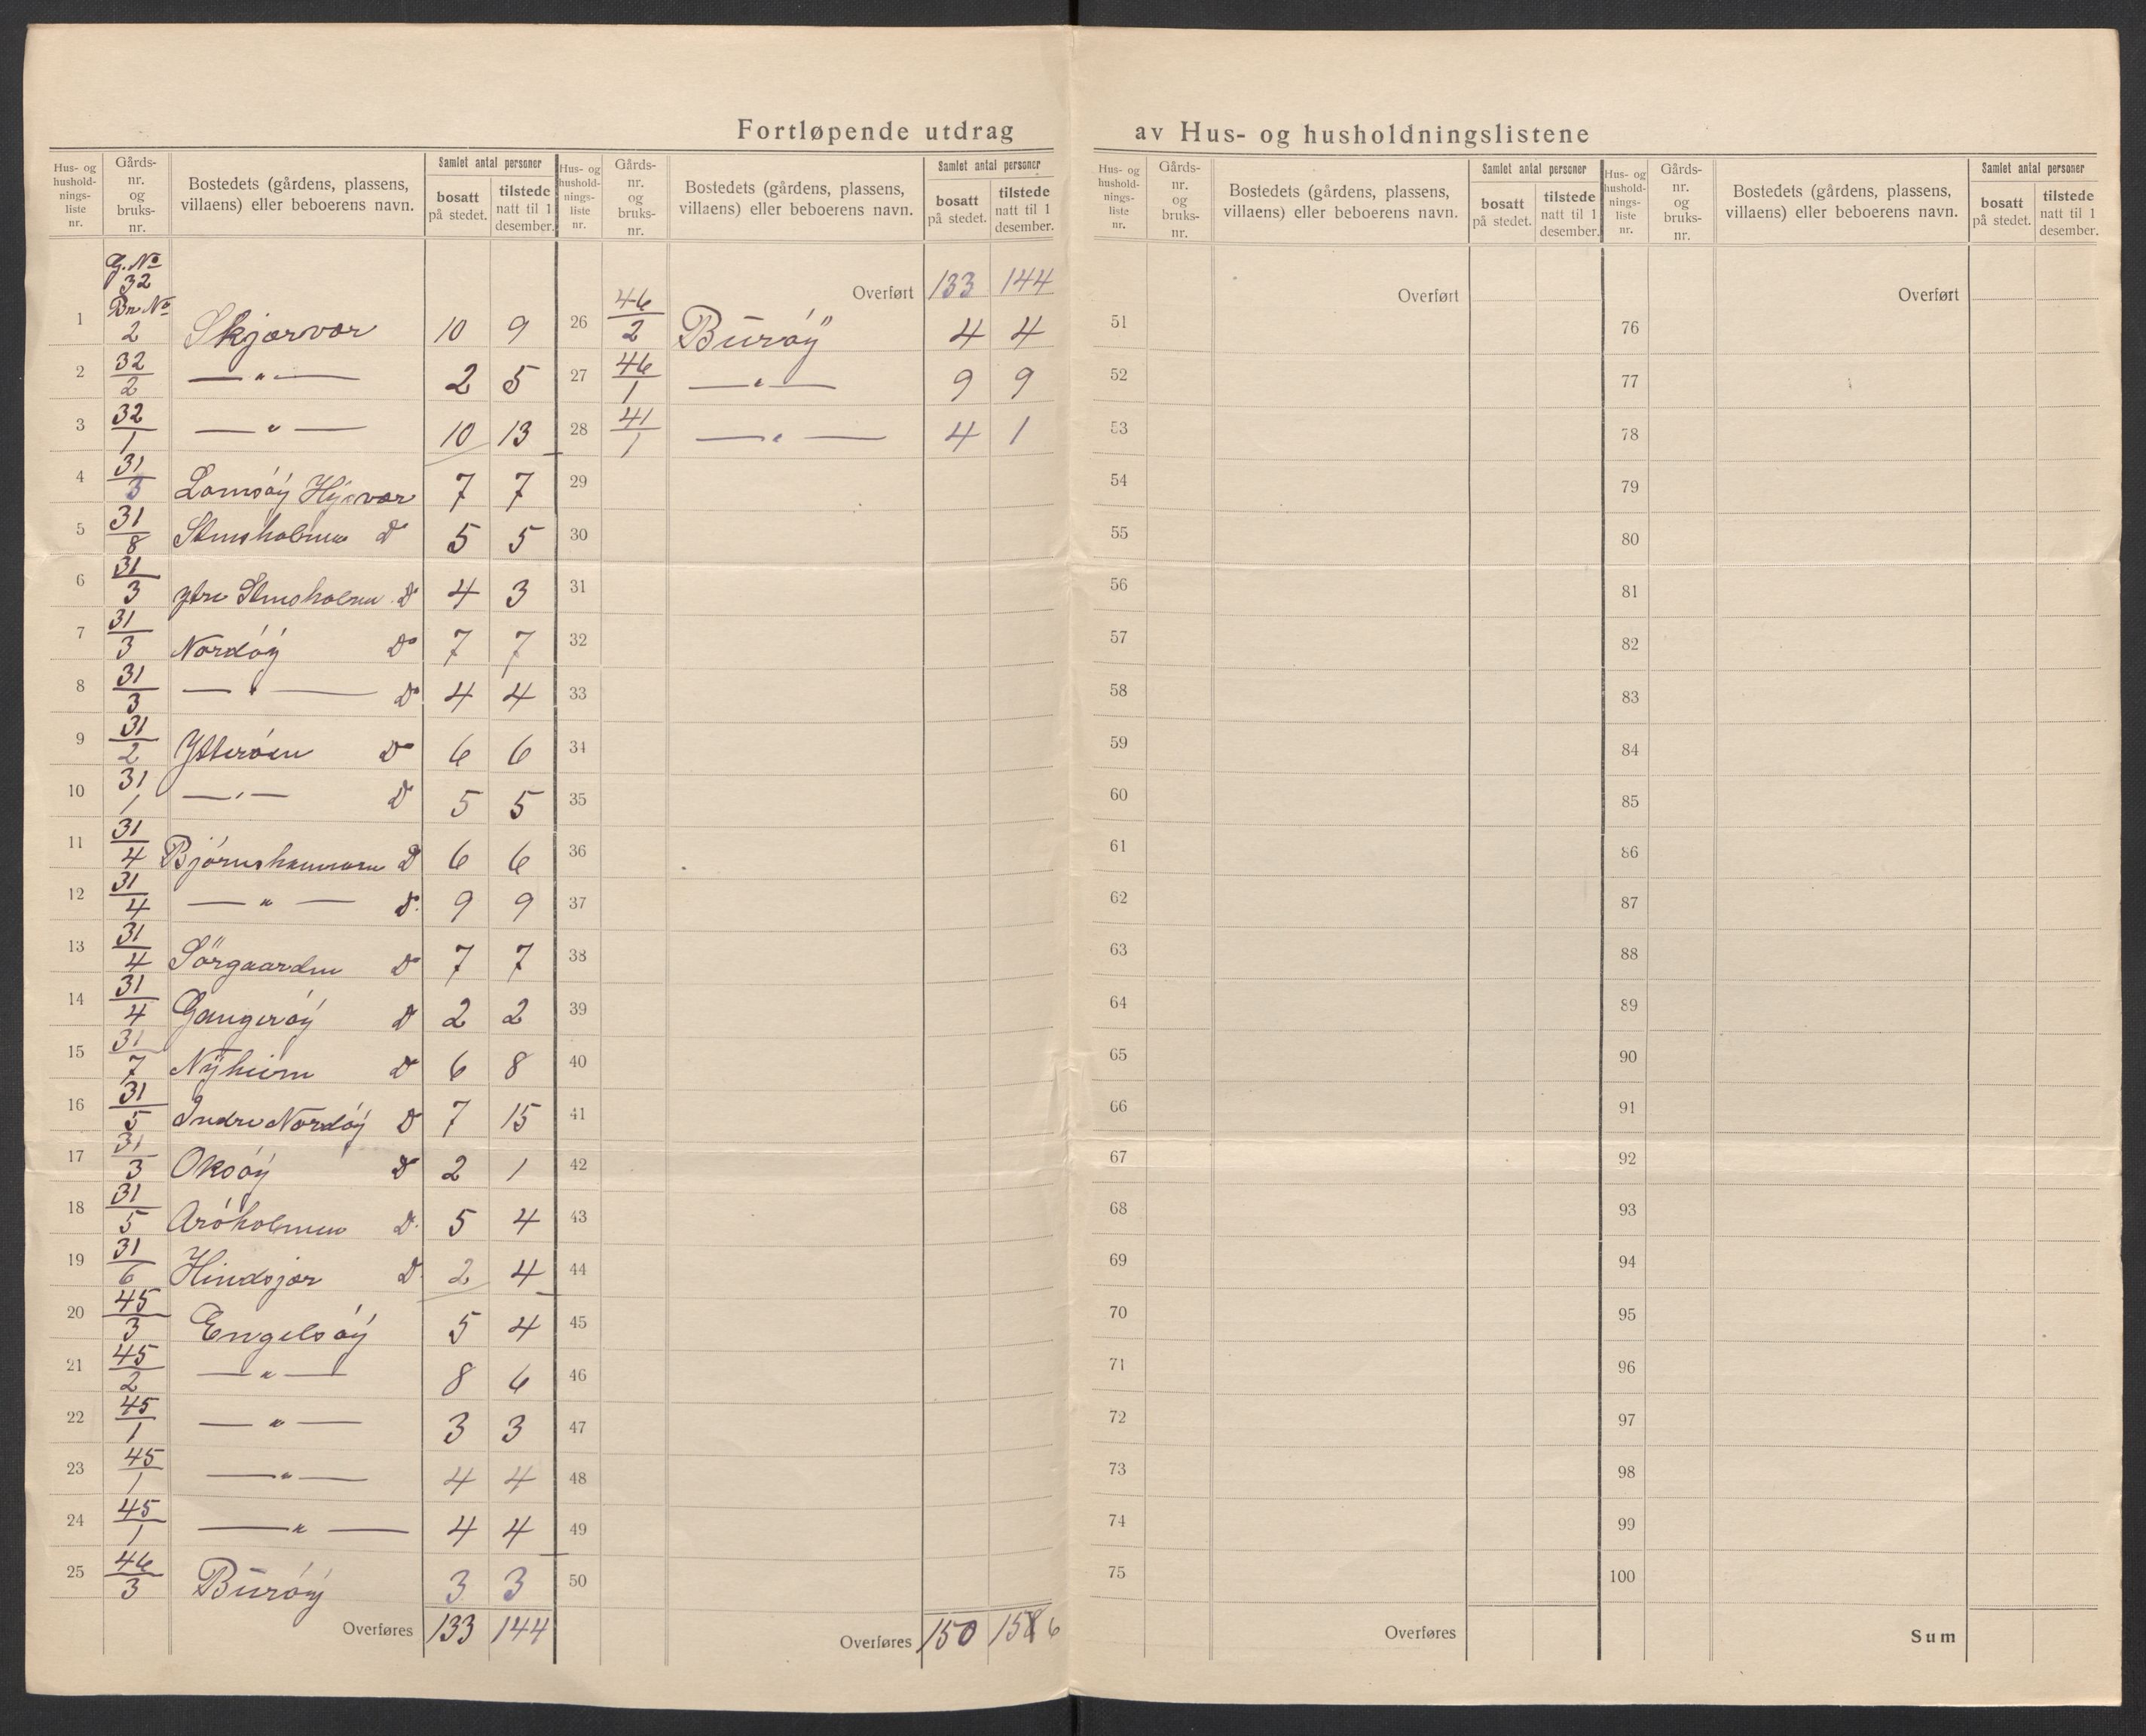 Fortløpende utdrag av Hus- og husholdningslistene
Hus- og hushold-nings-liste nr. Gårds-nr. og bruks-nr. Bostedets (gårdens, plassens, villaens) eller beboerens navn. Samlet antal personer bosatt på stedet. tilstede natt til 1 desember.
G. No 32
1 Br No 2 Skjærvær 10 9
2 32/2 — " — 2 5
3 32/1 — " — 10 13
4 31/3 Lamøy Hysvær 7 7
5 31/8 Stensholmen Do 5 5
6 31/3 ytre Stensholmen Do 4 3
7 31/3 Nordöy Do 7 7
8 31/3 — " — Do 4 4
9 31/2 Ytteröen Do 6 6
10 31/1 — " — Do 5 5
11 31/4 Björnshammarn Do 6 6
12 31/4 — " — Do 9 9
13 31/4 Sörgaarden Do 7 7
14 31/4 Gangeröy Do 2 2
15 31/7 Nyheim Do 6 8
16 31/5 Indre Nordöy Do 7 15
17 31/3 Oksöy Do 2 1
18 31/5 Aröholmen Do 5 4
19 31/6 Hindsjær Do 2 4
20 45/3 Engelsöy 5 4
21 45/2 — " — 8 6
22 45/1 — " — 3 3
23 45/1 — " — 4 4
24 45/1 — " — 4 4
25 46/3 Buröy 3 3
Overføres 133 144
Hus- og hushold-nings-liste nr. Gårds-nr. og bruks-nr. Bostedets (gårdens, plassens, villaens) eller beboerens navn. Samlet antal personer bosatt på stedet. tilstede natt til 1 desember.
Overført 133 144
26 46/2 Buröy 4 4
27 46/1 — " — 9 9
28 41/1 — " — 4 1
29
30
31
32
33
34
35
36
37
38
39
40
41
42
43
44
45
46
47
48
49
50
Overføres 150 158 6
Hus- og hushold-nings-liste nr. Gårds-nr. og bruks-nr. Bostedets (gårdens, plassens, villaens) eller beboerens navn. Samlet antal personer bosatt på stedet. tilstede natt til 1 desember.
Overført
51
52
53
54
55
56
57
58
59
60
61
62
63
64
65
66
67
68
69
70
71
72
73
74
75
Overføres
Hus- og hushold-nings-liste nr. Gårds-nr. og bruks-nr. Bostedets (gårdens, plassens, villaens) eller beboerens navn. Samlet antal personer bosatt på stedet. tilstede natt til 1 desember.
Overført
76
77
78
79
80
81
82
83
84
85
86
87
88
89
90
91
92
93
94
95
96
97
98
99
100
Sum